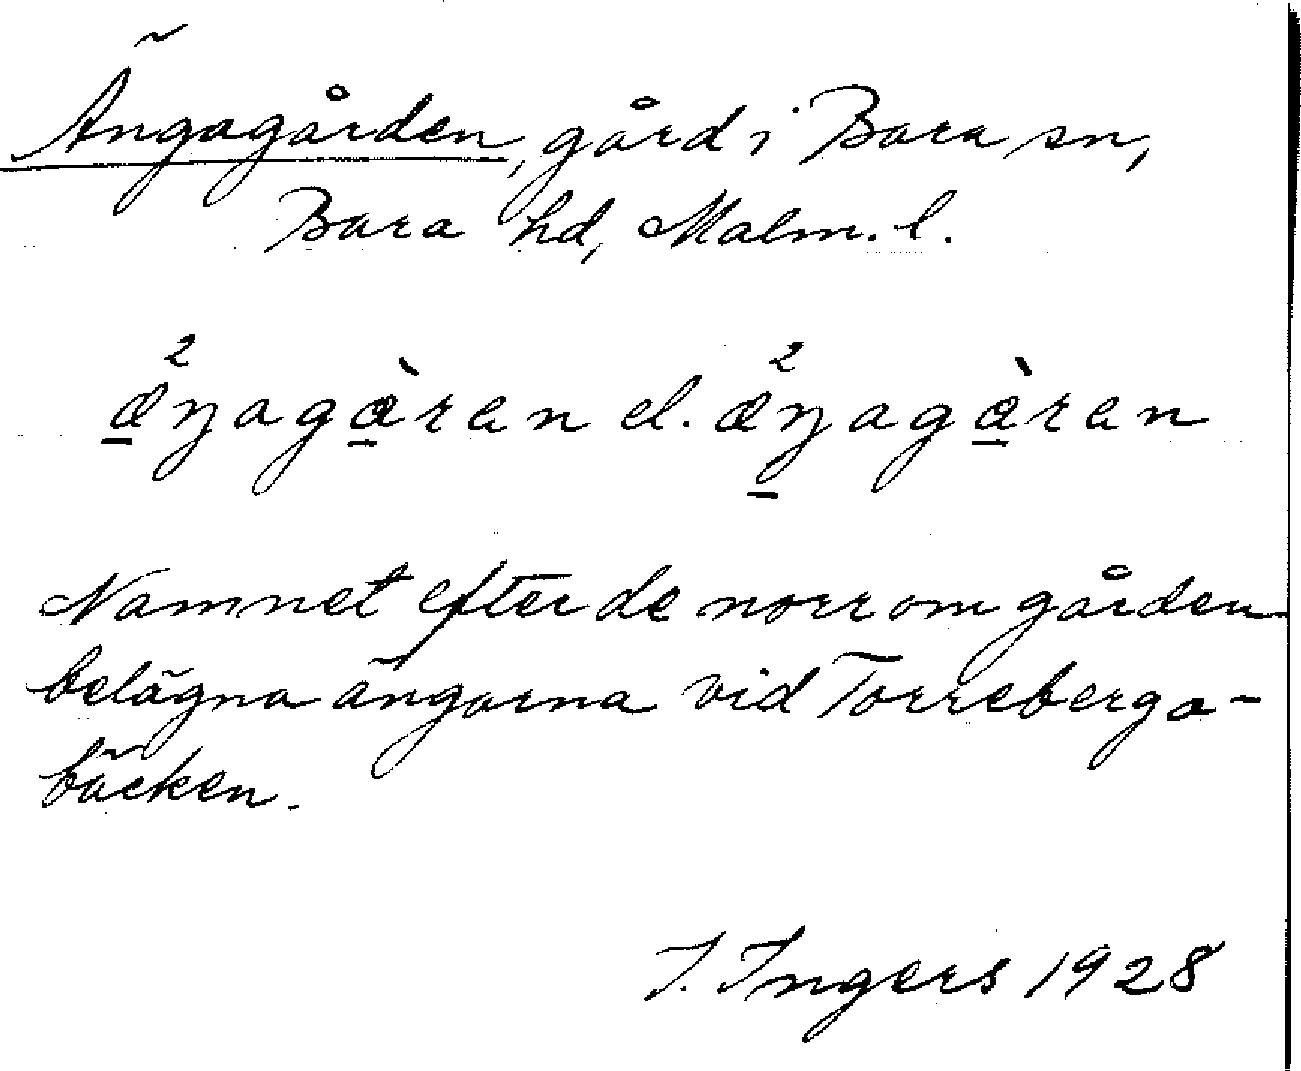 Ängagården, gård i Bara sn,
Bara hd, Malm. l.
æ̱²ŋagà̱ran el. æ²ŋ̱agà̱ran
Namnet efter de norrom gården
belägna ängarna vid Torreberga-
bäcken.
I. Ingers 1928